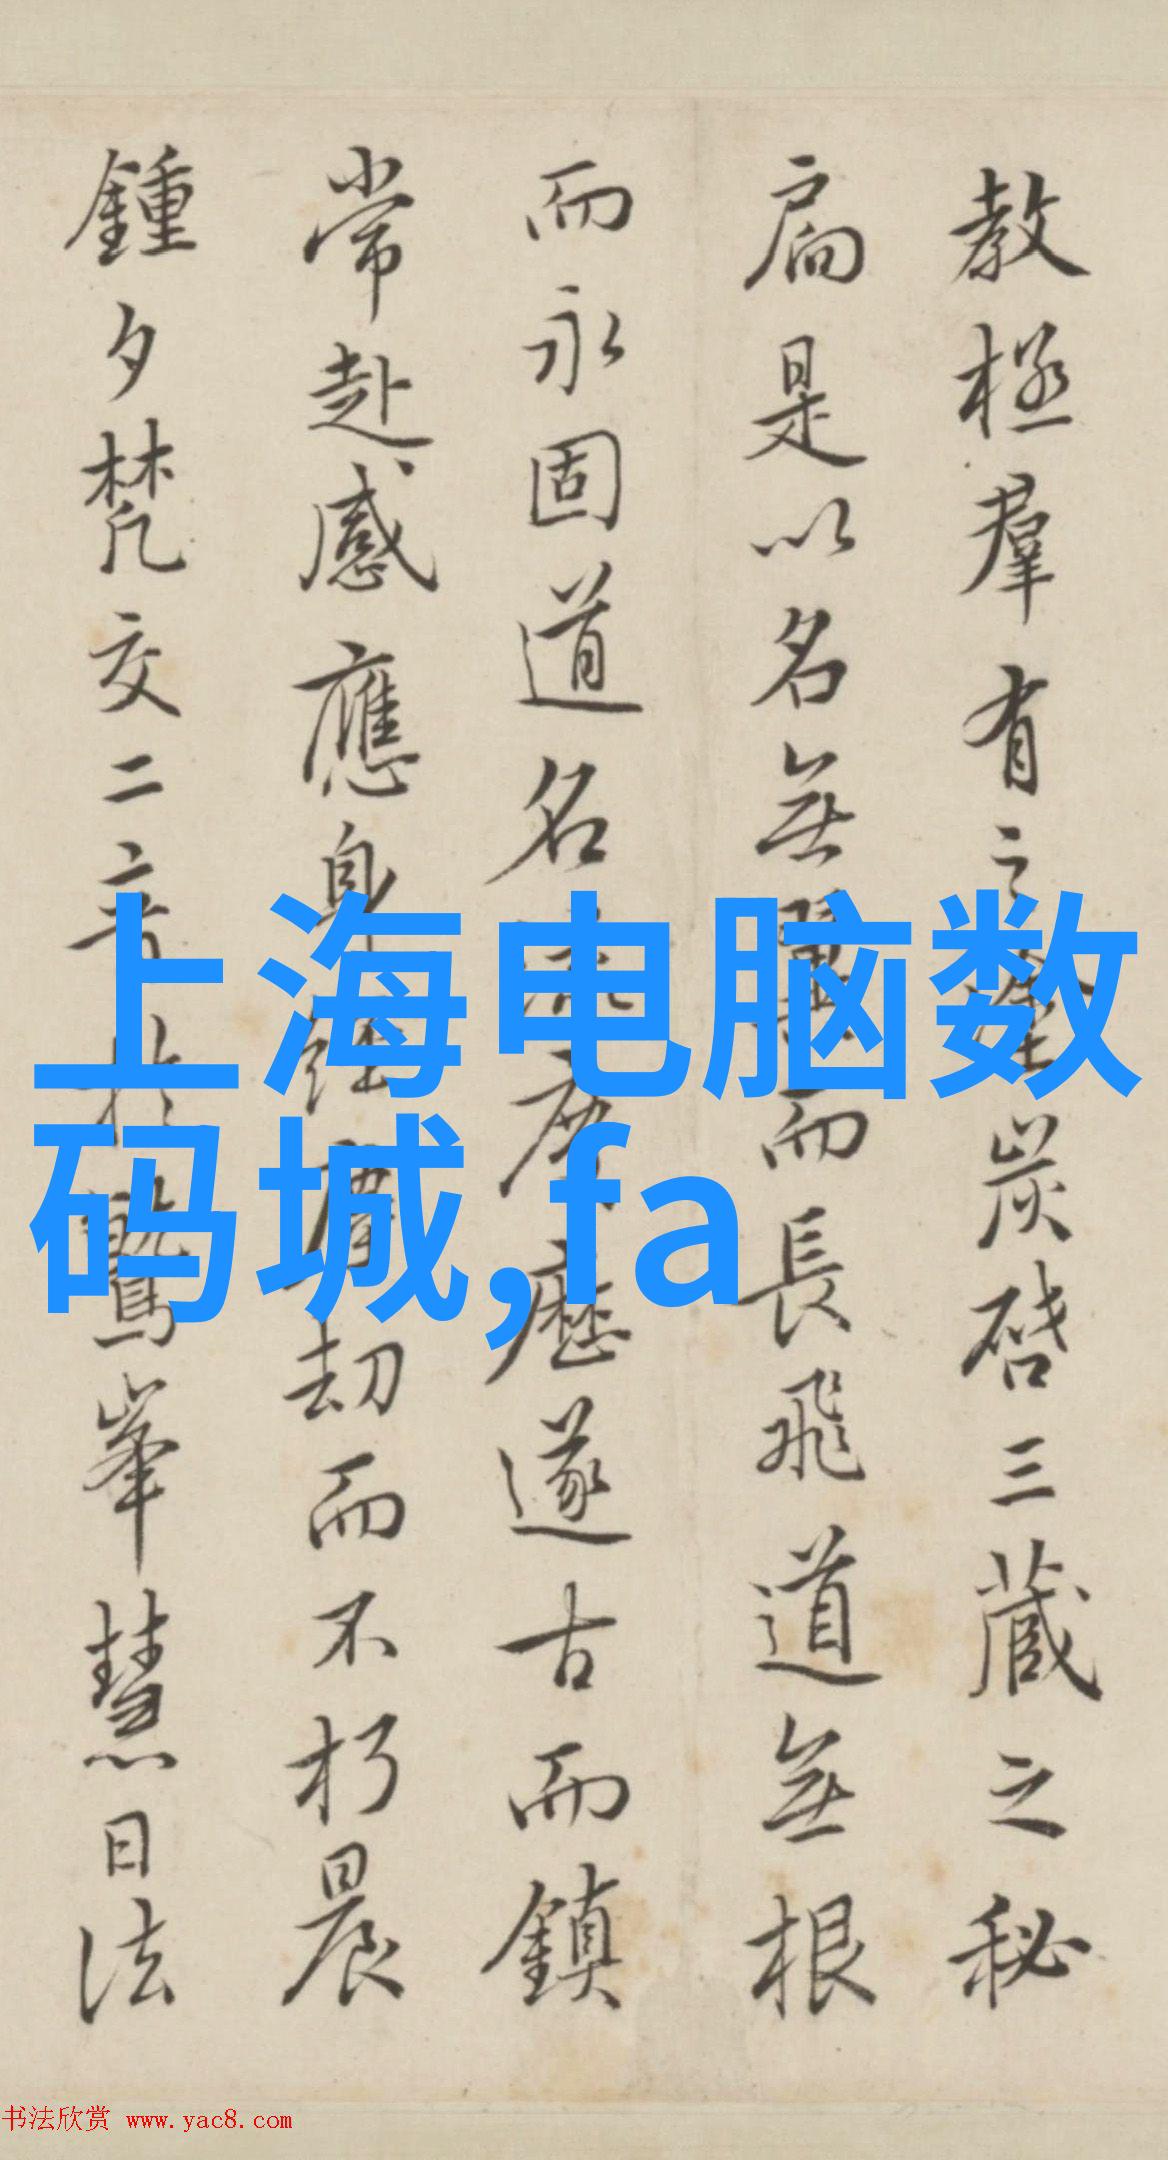 教拯羣有之塗炭啓三藏之秘
扃是以名無翼而長飛道無根
而永固道名流慶歷遂古而鎮
常赴感應身經塵劫而不朽晨
鍾夕梵交二音於鷲峯慧日法
上海电脑数
码城,fa
书法欣赏 www.yac8.com